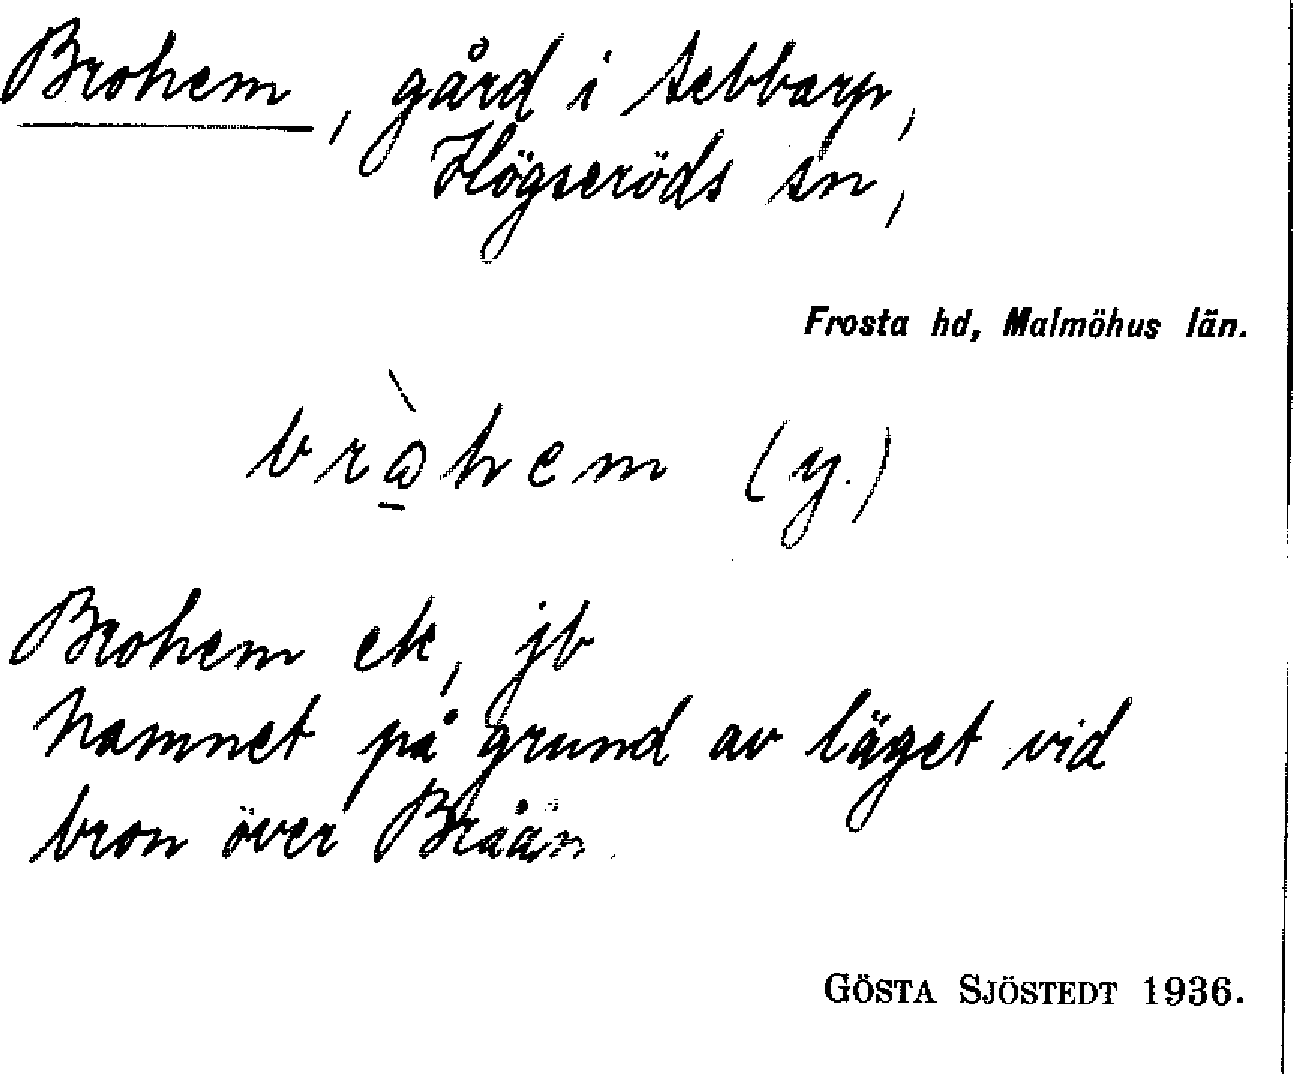 Brohem, gård i Sebbarp,
Högseröds sn,
Frosta hd, Malmöhus län.
hem (y.)
Brohem ek, jb
Namnet på grund av läget vid
bron över Bråån.
GÖSTA SJÖSTEDT 1936.